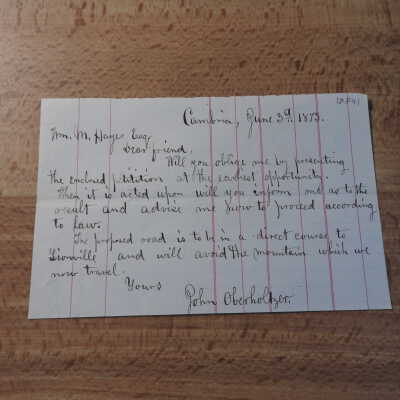 Cambria, June 3d. 1873.
Wm. M. Hayes Esq,
Dear friend,
Will you oblige me by presenting
the enclosed petition at the earliest opportunity.
When it is acted upon will you inform me as to the
result and advise me how to proceed according
to Law.
The proposed road is to be in a direct course to
Lionville and will avoid the mountain which we
now travel.
Yours
John Oberholtzer.